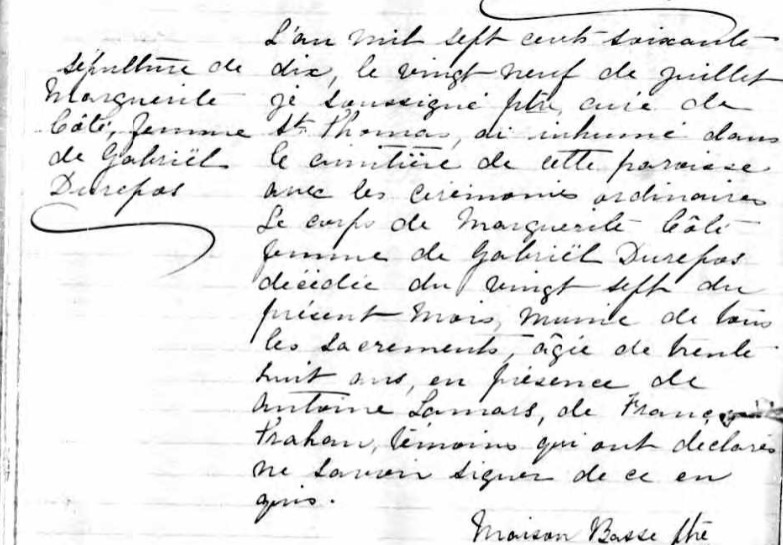 Sépulture de
Marguerite
Côté, femme
de Gabriël
Durepos
L'an mil sept cents soixante
dix, le vingt neuf de juillet
je soussigné ptre, curé de
St. Thomas, ai inhumé dans
le cimitière de cette paroisse
avec les cérémonies ordinaires
Le corps de Marguerite Côté
femme de Gabriël Durepos
décédée du vingt sept du
présent mois, munie de tous
les sacrements, âgée de trente
huit ans, en présence de
Antoine Lamars, de François
Trahan, témoins qui ont déclarés
ne savoir signer de ce en
quis.
Maison Basse ptre